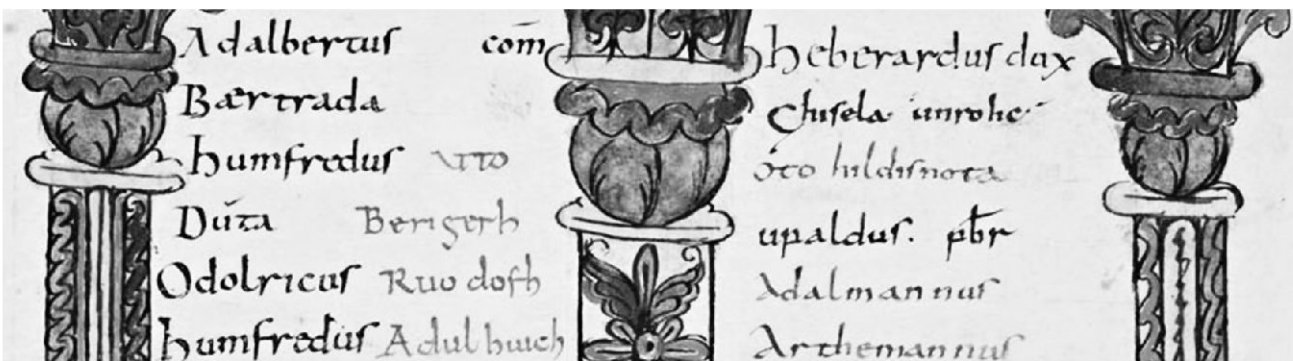 Adalbertus com̄
Bærtrada
humfredus Atto
Dūta Berigerh
Odolricus Ruodolh
humfredus Adulhuich
heberardus dux
Ghisela unrohc
oto hildisnota
upaldus. p̄br
Adalmannus
Arthemannus